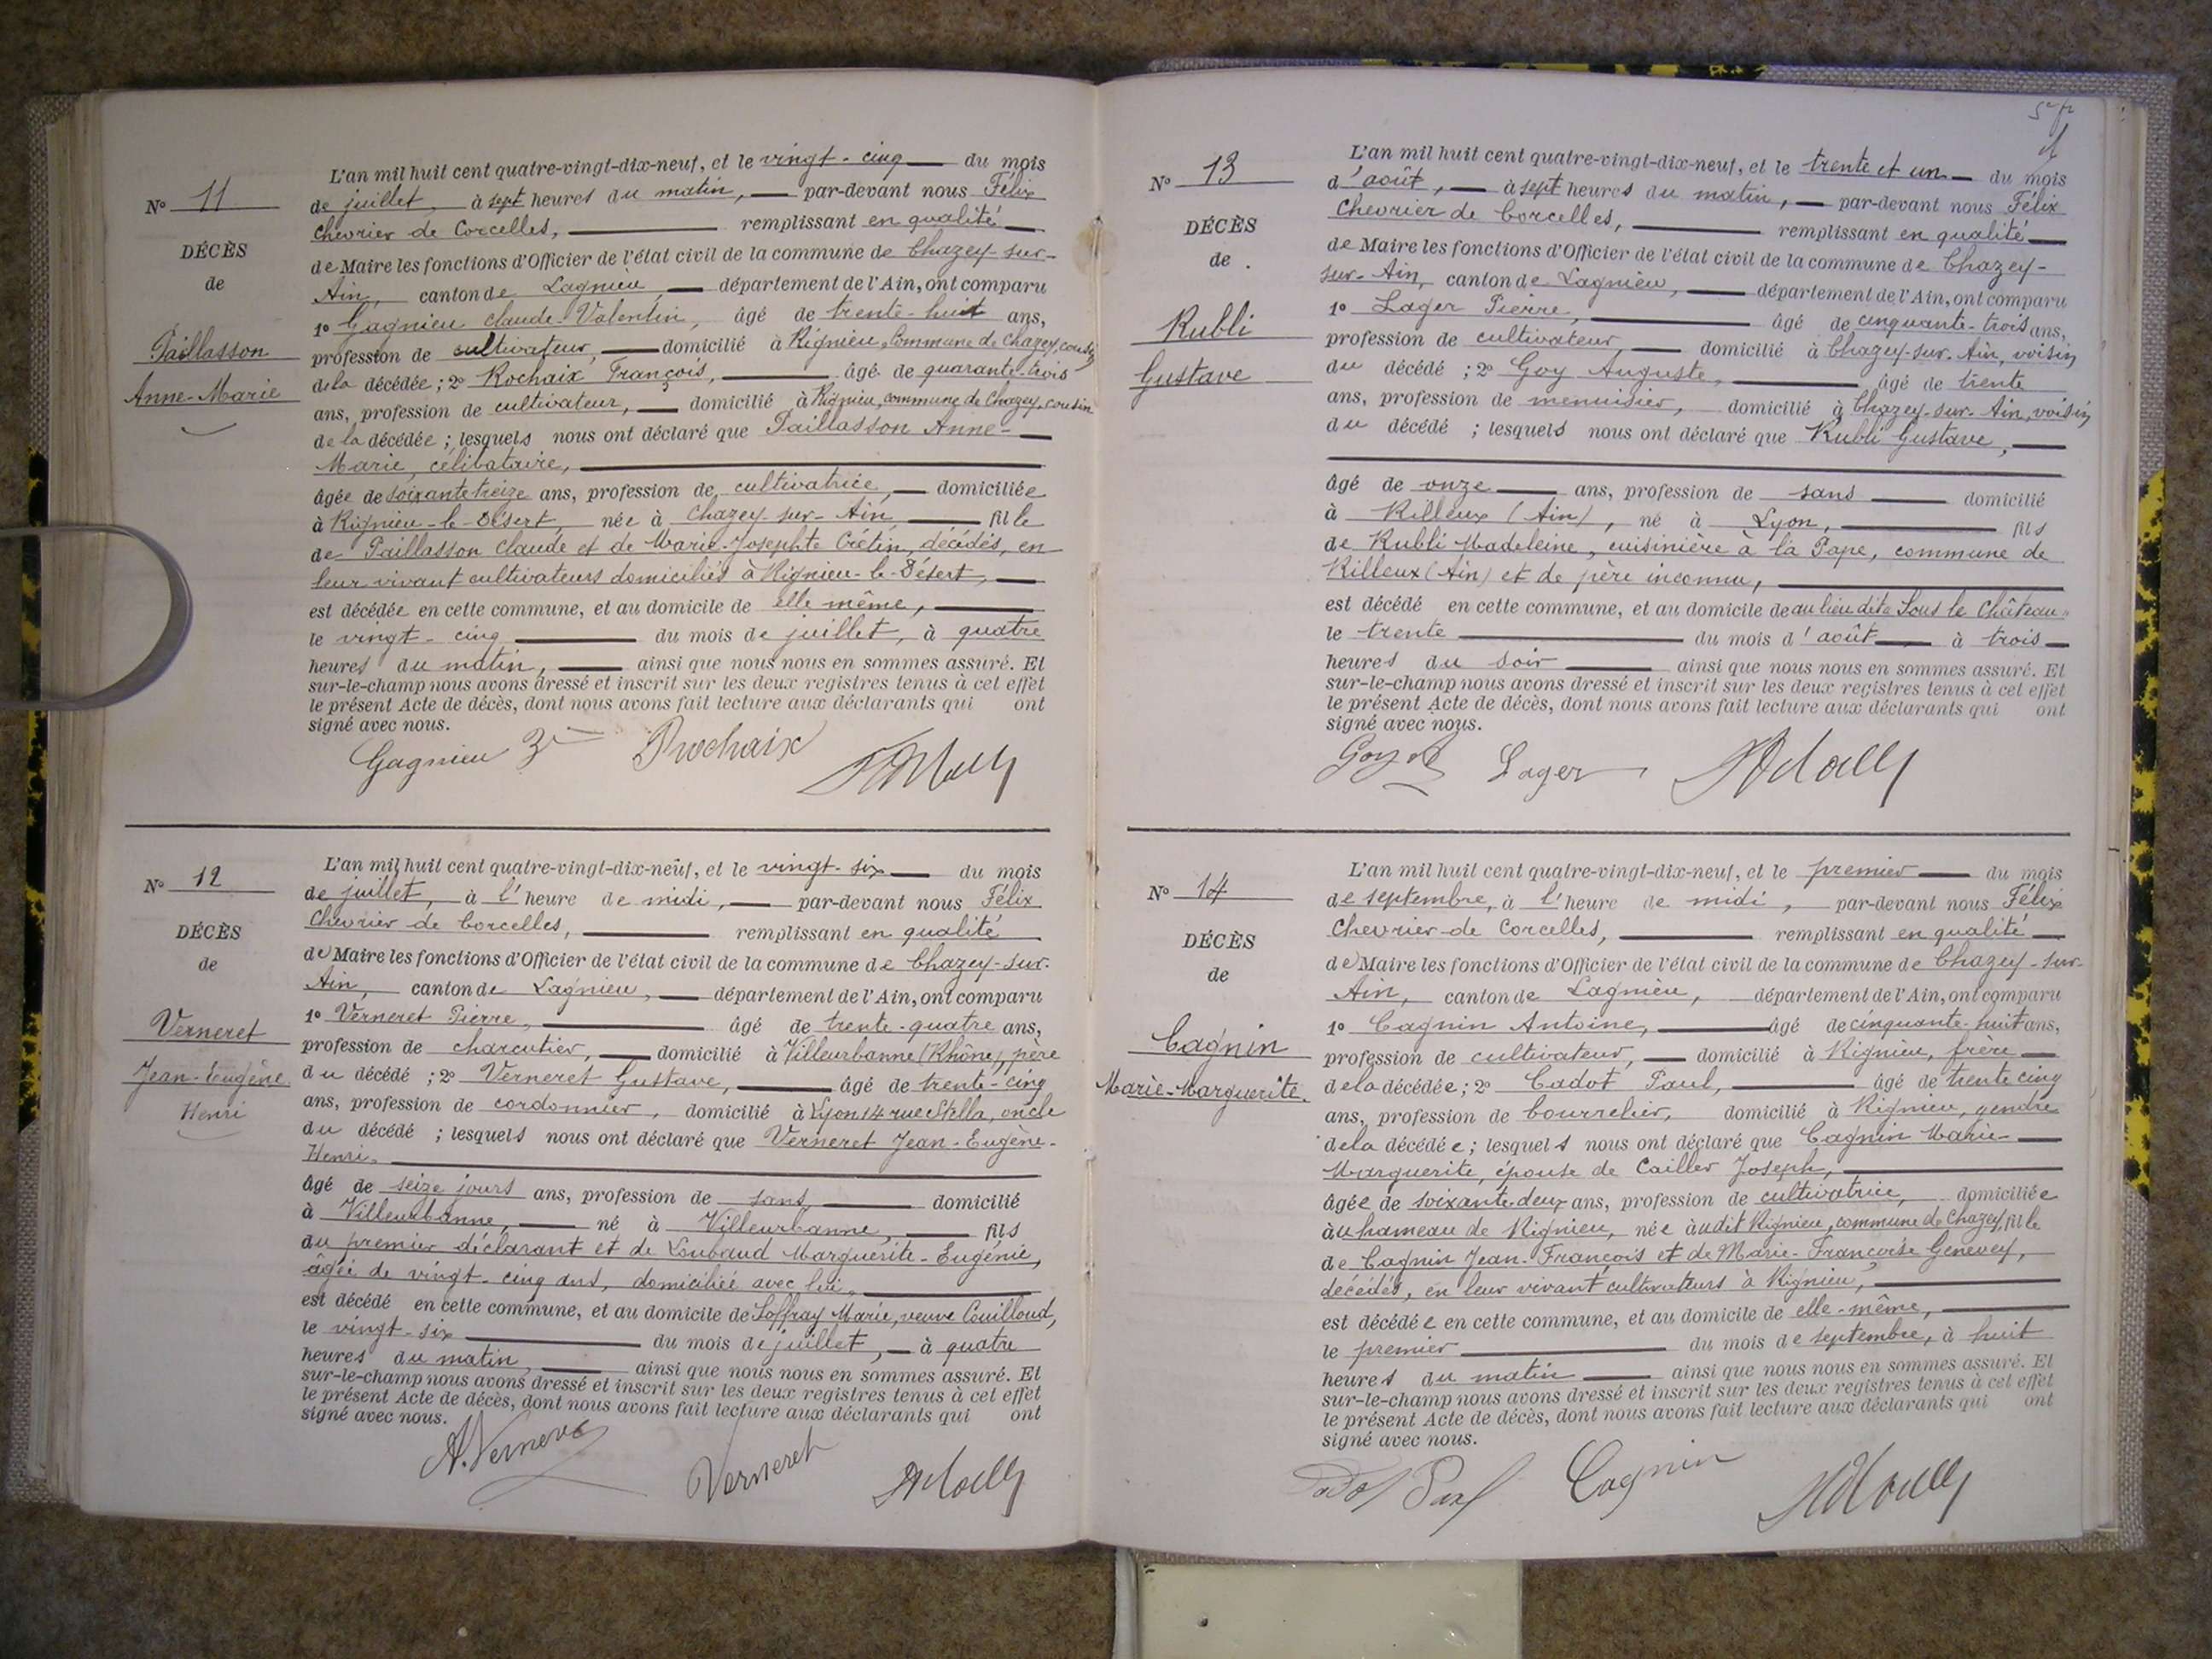 N° 11
DÉCÈS
de
Paillasson
Anne-Marie
L'an mil huit cent quatre-vingt-dix-neuf, et le vingt-cinq du mois
de juillet, à sept heures du matin, par-devant nous Félix
Chevrier de Corcelles, remplissant en qualité
de Maire les fonctions d'Officier de l'état civil de la commune de Chazey-sur-
Ain, canton de Lagnieu, département de l'Ain, ont comparu
1° Gagnieu Claude-Valentin, âgé de trente-huit ans,
profession de cultivateur, domicilié à Rignieu, commune de Chazey, cousin
de la décédée ; 2° Rochaix François, âgé de quarante-trois
ans, profession de cultivateur, domicilié à Rignieu, commune de Chazey, cousin
de la décédée ; lesquels nous ont déclaré que Paillasson Anne-
Marie, célibataire,
âgée de soixante treize ans, profession de cultivatrice, domiciliée
à Rignieu-le-Désert, née à Chazey-sur-Ain, fille
de Paillasson Claude et de Marie-Josephte Crétin, décédés, en
leur vivant cultivateurs domiciliés à Rignieu-le-Désert,
est décédée en cette commune, et au domicile de elle même,
le vingt-cinq du mois de juillet, à quatre
heures du matin, ainsi que nous nous en sommes assuré. Et
sur-le-champ nous avons dressé et inscrit sur les deux registres tenus à cet effet
le présent Acte de décès, dont nous avons fait lecture aux déclarants qui ont
signé avec nous.
Gagnieu Rochaix
N° 12
DÉCÈS
de
Verneret
Jean-Eugène
Henri
L'an mil huit cent quatre-vingt-dix-neuf, et le vingt-six du mois
de juillet, à l'heure de midi, par-devant nous Félix
Chevrier de Corcelles, remplissant en qualité
de Maire les fonctions d'Officier de l'état civil de la commune de Chazey-sur-
Ain, canton de Lagnieu, département de l'Ain, ont comparu
1° Verneret Pierre, âgé de trente-quatre ans,
profession de charcutier, domicilié à Villeurbanne (Rhône), père
du décédé ; 2° Verneret Gustave, âgé de trente-cinq
ans, profession de cordonnier, domicilié à Lyon 14 rue Stella, oncle
du décédé ; lesquels nous ont déclaré que Verneret Jean-Eugène-
Henri,
âgé de seize jours ans, profession de sans, domicilié
à Villeurbanne, né à Villeurbanne, fils
du premier déclarant et de Loubaud Marguerite-Eugénie,
âgée de vingt-cinq ans, domiciliée avec lui,
est décédé en cette commune, et au domicile de Soffray Marie, veuve Couilloud,
le vingt-six du mois de juillet, à quatre
heures du matin, ainsi que nous nous en sommes assuré. Et
sur-le-champ nous avons dressé et inscrit sur les deux registres tenus à cet effet
le présent Acte de décès, dont nous avons fait lecture aux déclarants qui ont
signé avec nous.
Verneret
N° 13
DÉCÈS
de
Rubli
Gustave
L'an mil huit cent quatre-vingt-dix-neuf, et le trente et un du mois
d'août, à sept heures du matin, par-devant nous Félix
Chevrier de Corcelles, remplissant en qualité
de Maire les fonctions d'Officier de l'état civil de la commune de Chazey-
sur-Ain, canton de Lagnieu, département de l'Ain, ont comparu
1° Lager Pierre, âgé de cinquante-trois ans,
profession de cultivateur, domicilié à Chazey-sur-Ain, voisin
du décédé ; 2° Goy Auguste, âgé de trente
ans, profession de menuisier, domicilié à Chazey-sur-Ain, voisin
du décédé ; lesquels nous ont déclaré que Rubli Gustave,
âgé de onze ans, profession de sans domicilié
à Rilleux (Ain), né à Lyon, fils
de Rubli Madeleine, cuisinière à la Pape, commune de
Rilleux (Ain) et de père inconnu,
est décédé en cette commune, et au domicile de au lieu dit "Sous le Château"
le trente du mois d'août à trois
heures du soir ainsi que nous nous en sommes assuré. Et
sur-le-champ nous avons dressé et inscrit sur les deux registres tenus à cet effet
le présent Acte de décès, dont nous avons fait lecture aux déclarants qui ont
signé avec nous.
Goy Lager
N° 14
DÉCÈS
de
Cagnin
Marie-Marguerite
L'an mil huit cent quatre-vingt-dix-neuf, et le premier du mois
de septembre, à l'heure de midi, par-devant nous Félix
Chevrier de Corcelles, remplissant en qualité
de Maire les fonctions d'Officier de l'état civil de la commune de Chazey-sur-
Ain, canton de Lagnieu, département de l'Ain, ont comparu
1° Cagnin Antoine, âgé de cinquante-huit ans,
profession de cultivateur, domicilié à Rignieu, frère
de la décédée ; 2° Cadot Paul, âgé de trente cinq
ans, profession de bourrelier, domicilié à Rignieu, gendre
de la décédée ; lesquels nous ont déclaré que Cagnin Marie-
Marguerite, épouse de Cailler Joseph,
âgée de soixante-deux ans, profession de cultivatrice, domiciliée
au hameau de Rignieu, née audit Rignieu, commune de Chazey, fille
de Cagnin Jean-François et de Marie-Françoise Genevey,
décédés, en leur vivant cultivateurs à Rignieu,
est décédée en cette commune, et au domicile de elle-même,
le premier du mois de septembre, à huit
heures du matin ainsi que nous nous en sommes assuré. Et
sur-le-champ nous avons dressé et inscrit sur les deux registres tenus à cet effet
le présent Acte de décès, dont nous avons fait lecture aux déclarants qui ont
signé avec nous.
Cadot Paul Cagnin